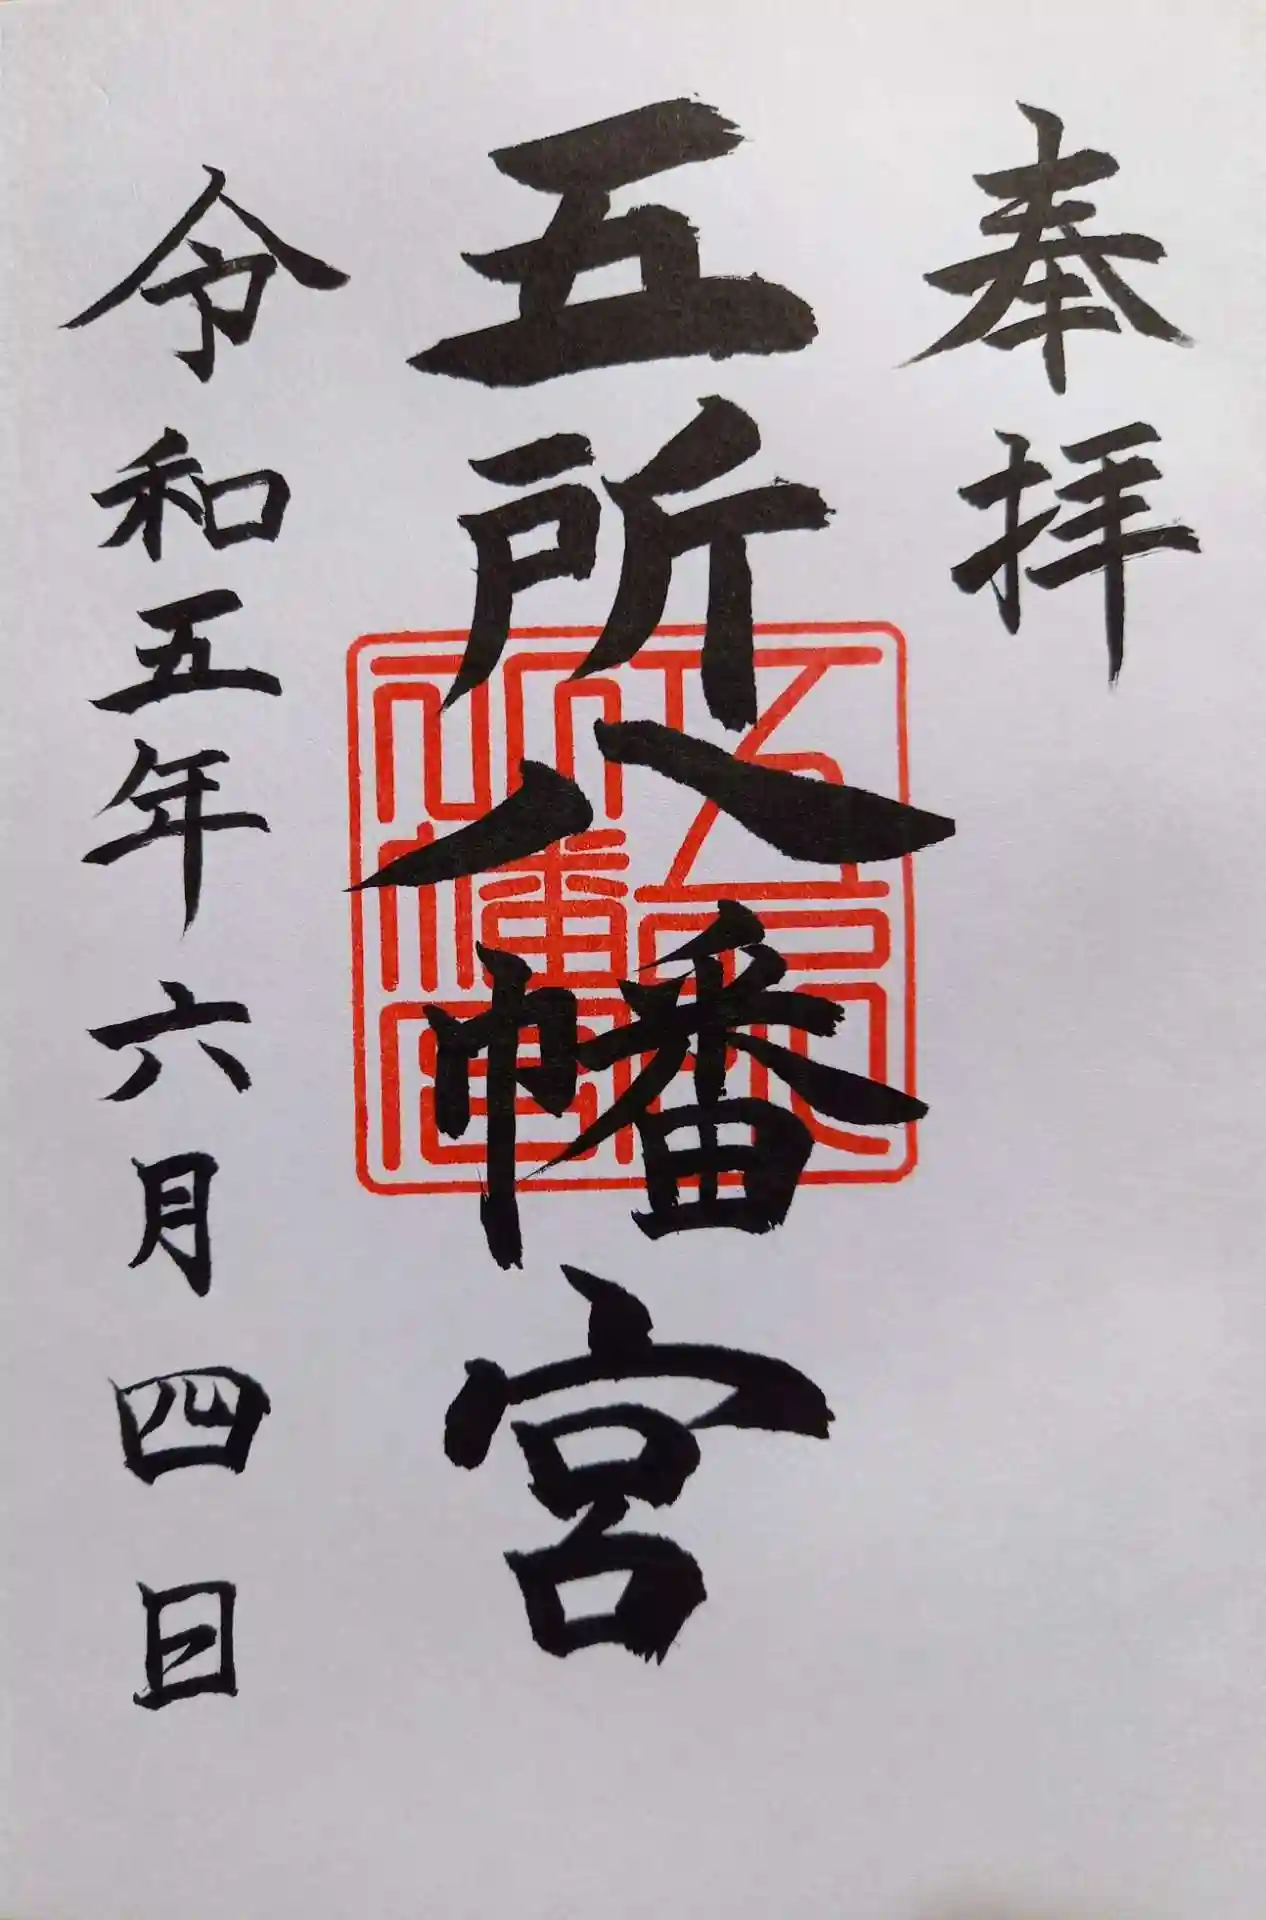 奉拝
五所八幡宮
令和五年六月四日
五所八幡宮